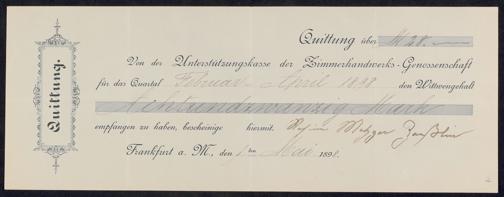 Quittung.
Quittung über M 28.
Von der Unterstützungskasse der Zimmerhandwerks-Genossenschaft
für das Quartal Februar - April 1898 den Wittwengehalt
Achtundzwanzig Mark
empfangen zu haben, bescheinige hiermit.
Frankfurt a. M., den 1ten Mai 1898.